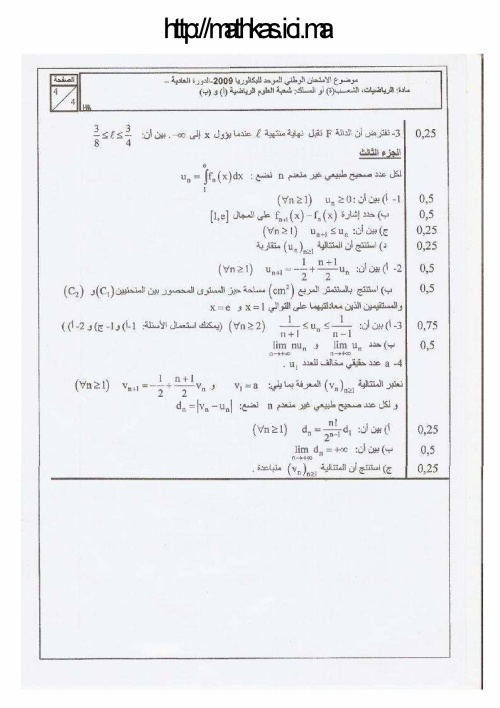 http://mathkas.ici.ma
الصفحة
4
4
موضوع الامتحان الوطني الموحد للبكالوريا 2009-الدورة العادية –
مادة: الرياضيات، الشعب(ة) أو المسلك: شعبة العلوم الرياضية (أ) و (ب)
3- نفترض أن الدالة F تقبل نهاية منتهية ℓ عندما يؤول x إلى −∞. بين أن: 3/8 ≤ ℓ ≤ 3/4 0,25
الجزء الثالث
لكل عدد صحيح طبيعي غير منعدم n نضع: u_n = ∫_1^e f_n(x)dx
1- أ) بين أن: u_n ≥ 0 (∀n ≥ 1) 0,5
ب) حدد إشارة f_{n+1}(x) − f_n(x) على المجال [1,e] 0,5
ج) بين أن: u_{n+1} ≤ u_n (∀n ≥ 1) 0,25
د) استنتج أن المتتالية (u_n)_{n≥1} متقاربة 0,25
2- أ) بين أن: u_{n+1} = −1/2 + (n+1)/2 u_n (∀n ≥ 1) 0,5
ب) استنتج بالسنتمتر المربع (cm²) مساحة حيز المستوى المحصور بين المنحنيين (C_1) و (C_2) 0,5
والمستقيمين الذين معادلتيهما على التوالي x = 1 و x = e
3- أ) بين أن: 1/(n+1) ≤ u_n ≤ 1/(n−1) (∀n ≥ 2) (يمكنك استعمال الأسئلة: 1-أ) و 1-ج) و 2-أ) ) 0,75
ب) حدد lim_{n→+∞} u_n و lim_{n→+∞} nu_n 0,5
4- a عدد حقيقي مخالف للعدد u_1.
نعتبر المتتالية (v_n)_{n≥1} المعرفة بما يلي: v_1 = a و v_{n+1} = −1/2 + (n+1)/2 v_n (∀n ≥ 1)
و لكل عدد صحيح طبيعي غير منعدم n نضع: d_n = |v_n − u_n|
أ) بين أن: d_n = n!/2^{n−1} d_1 (∀n ≥ 1) 0,25
ب) بين أن: lim_{n→+∞} d_n = +∞ 0,5
ج) استنتج أن المتتالية (v_n)_{n≥1} متباعدة. 0,25